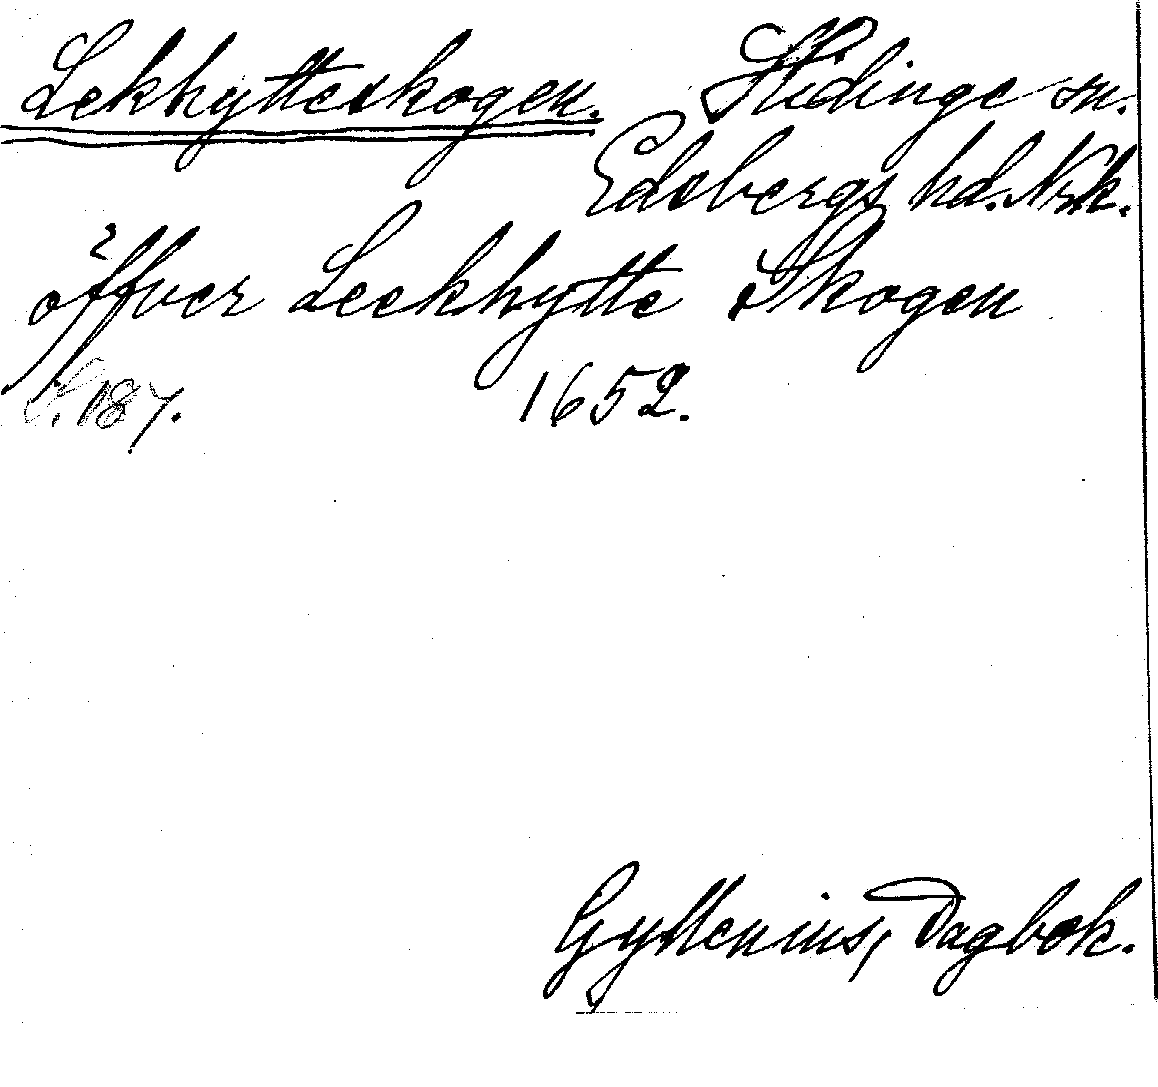 Lekhytteskogen. Hidinge sn.
Edsbergs hd. Nrk.
öffver Leekhytte Skogen
S. 187. 1652.
Gyllenius, Dagbok.